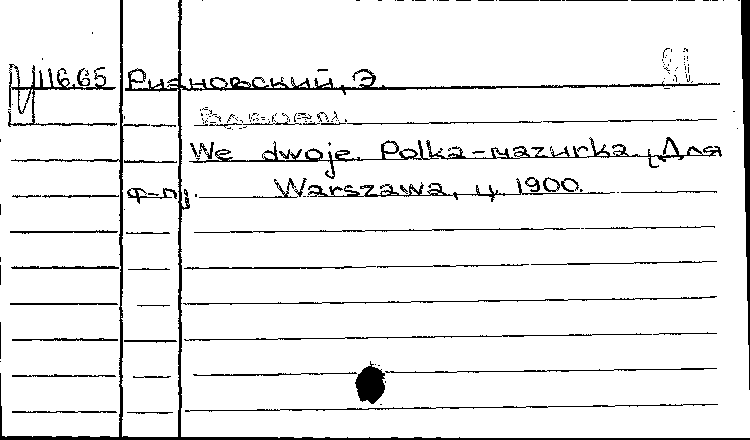 116.65 Риановский, Э. 81
Вдвоем.
We dwoje. Polka-mazurka. [Для
ф-п]. Warszawa, ц. 1900.